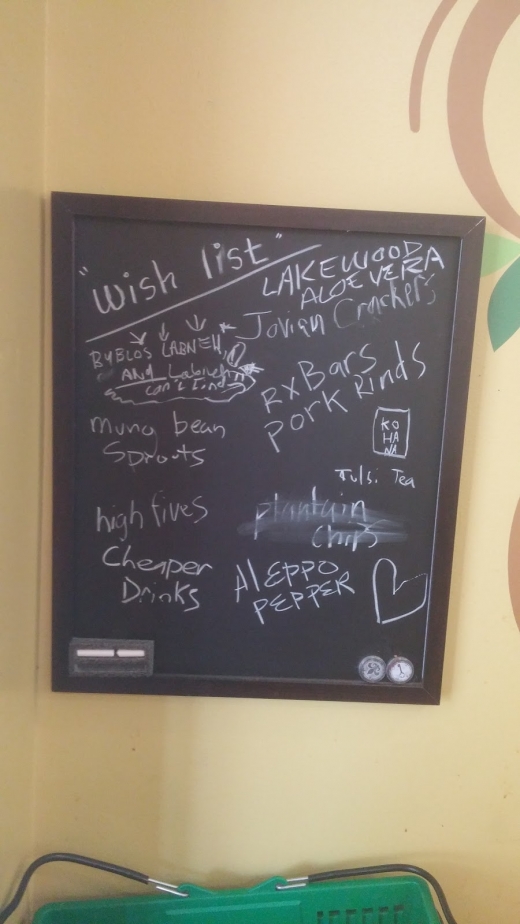 "wish list"
LAKEWOOD
ALOE VERA
Jovian Crackers
BYBLOS LABNEH
AND Labneh
can't find
mung bean
Sprouts
high fives
Cheaper
Drinks
RX Bars
Pork Rinds
KO
HA
NA
Tulsi Tea
plantain
chips
Al EPPO
PEPPER